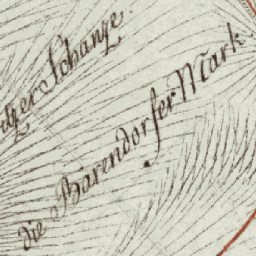 Schanze.
die Bärendorfer Mark